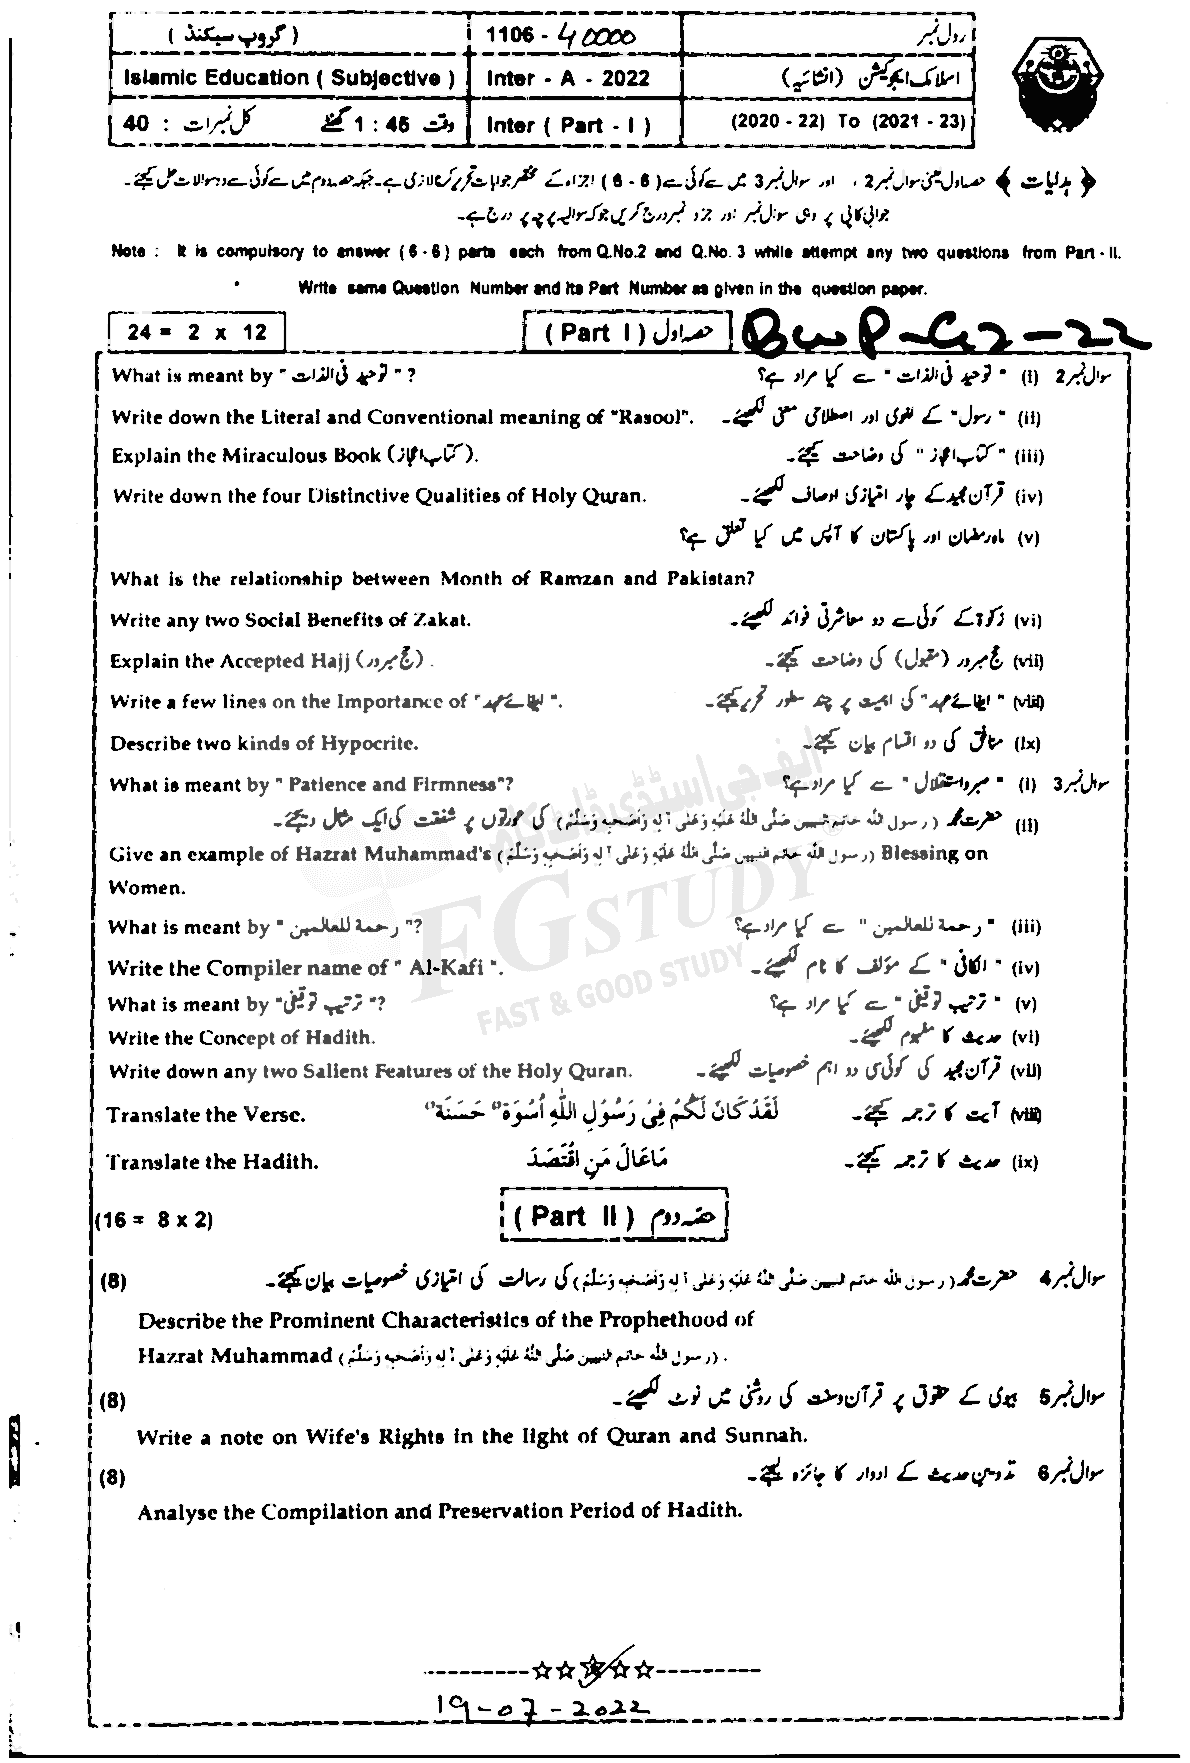 (گروپ سیکنڈ) 1106 - 40000 رول نمبر
Islamic Education ( Subjective ) Inter - A - 2022 اسلامک ایجوکیشن (انشائیہ)
کل نمبرات : 40 وقت 1 : 45 گھنٹے Inter ( Part - I ) (2020 - 22) To (2021 - 23)
﴿ ہدایات ﴾ حصہ اول یعنی سوال نمبر 2 ، اور سوال نمبر 3 میں سے کوئی سے (6 - 6) اجزاء کے مختصر جوابات تحریر کرنا لازمی ہے۔ جبکہ حصہ دوم میں سے کوئی سے دو سوالات حل کیجئے۔
جوابی کاپی پر وہی سوال نمبر اور جزو نمبر درج کریں جو کہ سوالیہ پرچہ پر درج ہے۔
Note : It is compulsory to answer (6 - 6) parts each from Q.No.2 and Q.No. 3 while attempt any two questions from Part - II.
Write same Question Number and its Part Number as given in the question paper.
24 = 2 x 12 حصہ اول ( Part I ) BWP-G2-22
What is meant by " توحید فی الذات " ? سوال نمبر 2 (i) " توحید فی الذات " سے کیا مراد ہے؟
Write down the Literal and Conventional meaning of "Rasool". (ii) " رسول " کے لغوی اور اصطلاحی معنی لکھیئے۔
Explain the Miraculous Book (کتاب اعجاز). (iii) " کتاب اعجاز " کی وضاحت کیجئے۔
Write down the four Distinctive Qualities of Holy Quran. (iv) قرآن مجید کے چار امتیازی اوصاف لکھیئے۔
(v) ماہ رمضان اور پاکستان کا آپس میں کیا تعلق ہے؟
What is the relationship between Month of Ramzan and Pakistan?
Write any two Social Benefits of Zakat. (vi) زکوٰۃ کے کوئی سے دو معاشرتی فوائد لکھیئے۔
Explain the Accepted Hajj (حج مبرور) . (vii) حج مبرور (مقبول) کی وضاحت کیجئے۔
Write a few lines on the Importance of " ایفائے عہد ". (viii) " ایفائے عہد " کی اہمیت پر چند سطور تحریر کیجئے۔
Describe two kinds of Hypocrite. (ix) منافق کی دو اقسام بیان کیجئے۔
What is meant by " Patience and Firmness"? سوال نمبر 3 (i) " صبر و استقلال " سے کیا مراد ہے؟
(ii) حضرت محمد (رسول اللہ خاتم النبیین صَلَّی اللهُ عَلَیْهِ وَعَلٰی آلِهٖ وَاَصْحٰبِهٖ وَسَلَّمْ) کی عورتوں پر شفقت کی ایک مثال دیجئے۔
Give an example of Hazrat Muhammad's (رسول اللہ خاتم النبیین صَلَّی اللهُ عَلَیْهِ وَعَلٰی آلِهٖ وَاَصْحٰبِهٖ وَسَلَّمْ) Blessing on
Women.
What is meant by " رحمة للعالمين "? (iii) " رحمة للعالمين " سے کیا مراد ہے؟
Write the Compiler name of " Al-Kafi ". (iv) " الکافی " کے مؤلف کا نام لکھیئے۔
What is meant by " ترتیب توقیفی "? (v) " ترتیب توقیفی " سے کیا مراد ہے؟
Write the Concept of Hadith. (vi) حدیث کا مفہوم لکھیئے۔
Write down any two Salient Features of the Holy Quran. (vii) قرآن مجید کی کوئی سی دو اہم خصوصیات لکھیئے۔
Translate the Verse. لَقَدْ كَانَ لَكُمْ فِىْ رَسُوْلِ اللّٰهِ اُسْوَةٌ حَسَنَةٌ (viii) آیت کا ترجمہ کیجئے۔
Translate the Hadith. مَا عَالَ مَنِ اقْتَصَدَ (ix) حدیث کا ترجمہ کیجئے۔
(16 = 8 x 2) حصہ دوم ( Part II )
(8) سوال نمبر 4 حضرت محمد (رسول اللہ خاتم النبیین صَلَّی اللهُ عَلَیْهِ وَعَلٰی آلِهٖ وَاَصْحٰبِهٖ وَسَلَّمْ) کی رسالت کی امتیازی خصوصیات بیان کیجئے۔
Describe the Prominent Characteristics of the Prophethood of
Hazrat Muhammad (رسول اللہ خاتم النبیین صَلَّی اللهُ عَلَیْهِ وَعَلٰی آلِهٖ وَاَصْحٰبِهٖ وَسَلَّمْ) .
(8) سوال نمبر 5 بیوی کے حقوق پر قرآن و سنت کی روشنی میں نوٹ لکھیئے۔
Write a note on Wife's Rights in the light of Quran and Sunnah.
(8) سوال نمبر 6 تدوین حدیث کے ادوار کا جائزہ لیجئے۔
Analyse the Compilation and Preservation Period of Hadith.
19-07-2022
ایف جی اسٹڈی ڈاٹ کام
FG STUDY
FAST & GOOD STUDY